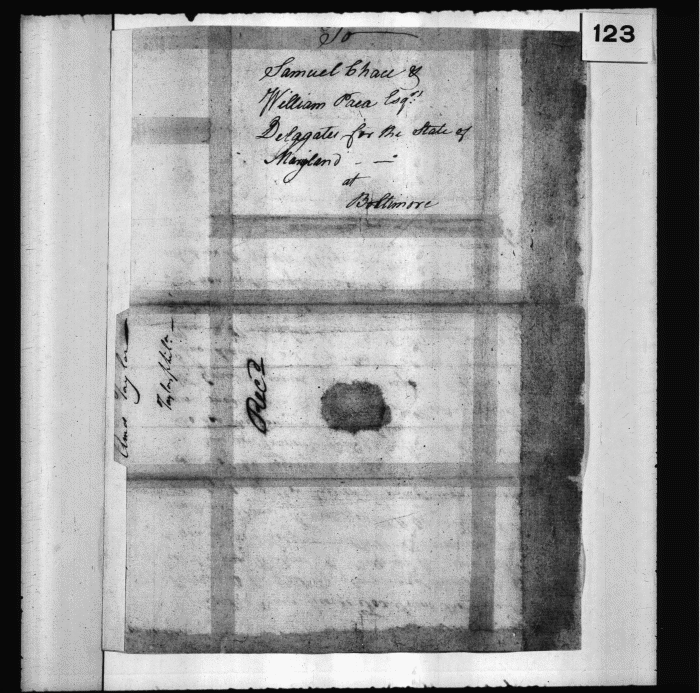 123
To
Samuel Chace &
William Paca Esqrs
Delagates for the State of
Maryland - —
at
Baltimore
Recd